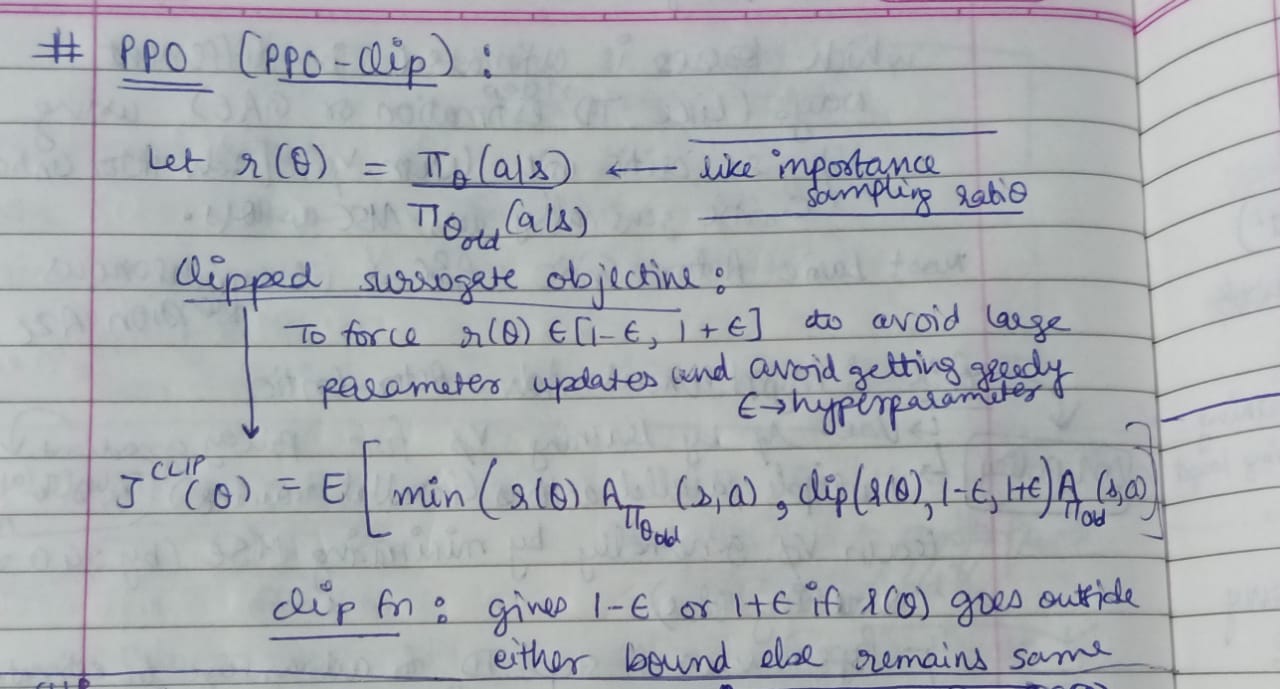 # PPO (PPO-Clip) :
Let r(θ) = π_θ(a|s) ← like importance
sampling ratio
π_θold(a|s)
Clipped surrogate objective :
To force r(θ) ∈ [1-ϵ, 1+ϵ] to avoid large
parameter updates and avoid getting greedy
ϵ → hyperparameter
J^CLIP(θ) = E[min(r(θ) A_π_θold (s,a), clip(r(θ), 1-ϵ, 1+ϵ) A_πold (s,a)]
clip fn : gives 1-ϵ or 1+ϵ if r(θ) goes outside
either bound else remains same